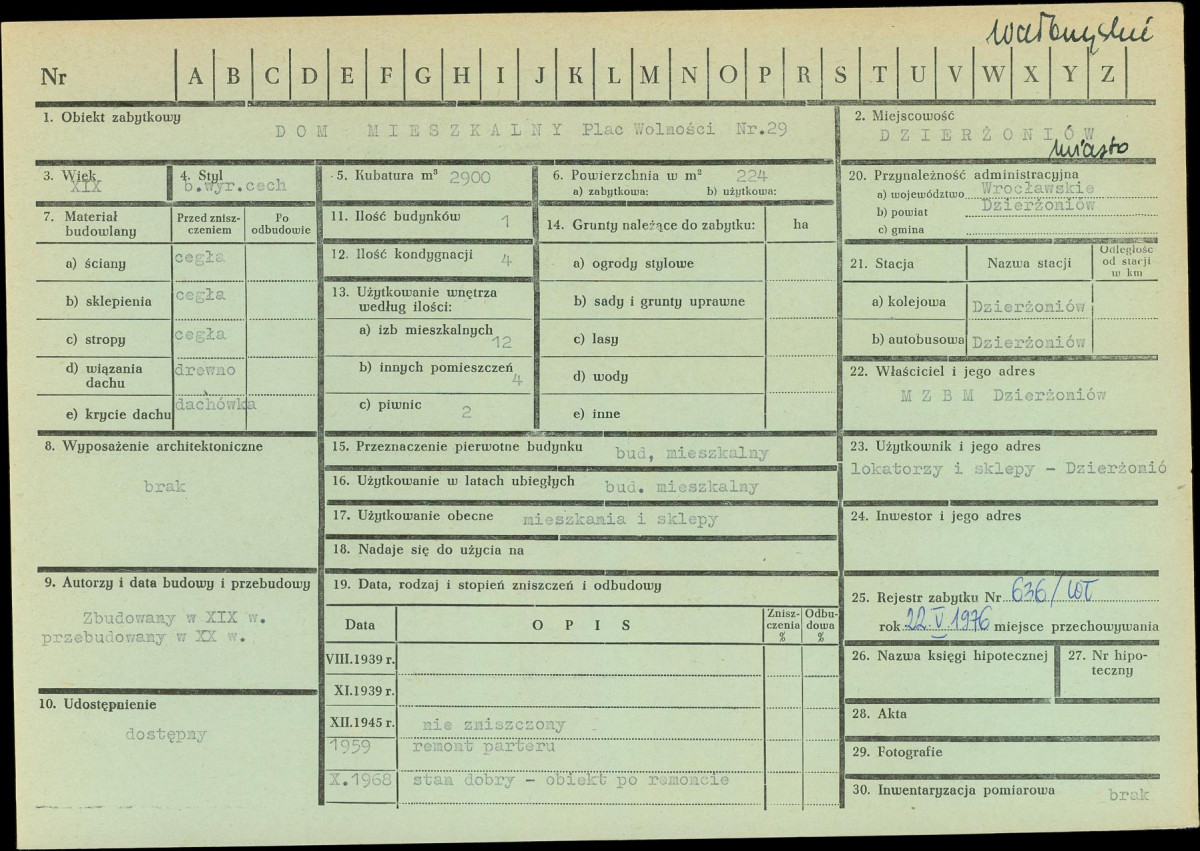 wałbrzyskie
Nr A B C D E F G H I J K L M N O P R S T U V W X Y Z
1. Obiekt zabytkowy
DOM MIESZKALNY Plac Wolności Nr.29
2. Miejscowość
DZIERŻONIÓW
miasto
3. Wiek
XIX
4. Styl
b.wyr.cech
5. Kubatura m³ 2900
6. Powierzchnia w m² 224
a) zabytkowa: b) użytkowa:
20. Przynależność administracyjna
a) województwo Wrocławskie
b) powiat Dzierżoniów
c) gmina
7. Materiał budowlany
Przed zniszczeniem
Po odbudowie
a) ściany cegła
b) sklepienia cegła
c) stropy cegła
d) wiązania dachu drewno
e) krycie dachu dachówka
11. Ilość budynków 1
12. Ilość kondygnacji 4
13. Użytkowanie wnętrza według ilości:
a) izb mieszkalnych 12
b) innych pomieszczeń 4
c) piwnic 2
14. Grunty należące do zabytku: ha
a) ogrody stylowe
b) sady i grunty uprawne
c) lasy
d) wody
e) inne
21. Stacja Nazwa stacji Odległość od stacji w km
a) kolejowa Dzierżoniów
b) autobusowa Dzierżoniów
22. Właściciel i jego adres
MZBM Dzierżoniów
8. Wyposażenie architektoniczne
brak
15. Przeznaczenie pierwotne budynku bud, mieszkalny
16. Użytkowanie w latach ubiegłych bud. mieszkalny
17. Użytkowanie obecne mieszkania i sklepy
18. Nadaje się do użycia na
23. Użytkownik i jego adres
lokatorzy i sklepy - Dzierżonió
24. Inwestor i jego adres
9. Autorzy i data budowy i przebudowy
Zbudowany w XIX w.
przebudowany w XX w.
10. Udostępnienie
dostępny
19. Data, rodzaj i stopień zniszczeń i odbudowy
Data OPIS Zniszczenia % Odbudowa %
VIII.1939 r.
XI.1939 r.
XII.1945 r. nie zniszczony
1959 remont parteru
X.1968 stan dobry - obiekt po remoncie
25. Rejestr zabytku Nr 636/WŁ
rok 22.V 1976 miejsce przechowywania
26. Nazwa księgi hipotecznej
27. Nr hipoteczny
28. Akta
29. Fotografie
30. Inwentaryzacja pomiarowa brak